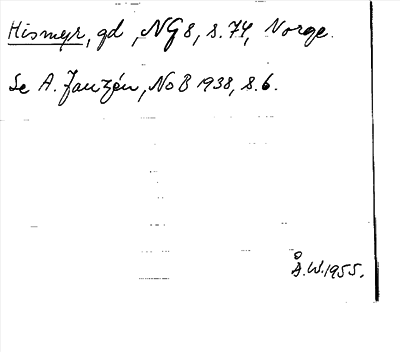 Hismyr, gd, NG 8, s. 74, Norge.
Se A. Janzén, NoB 1938, s. 6.
Å.W. 1955.